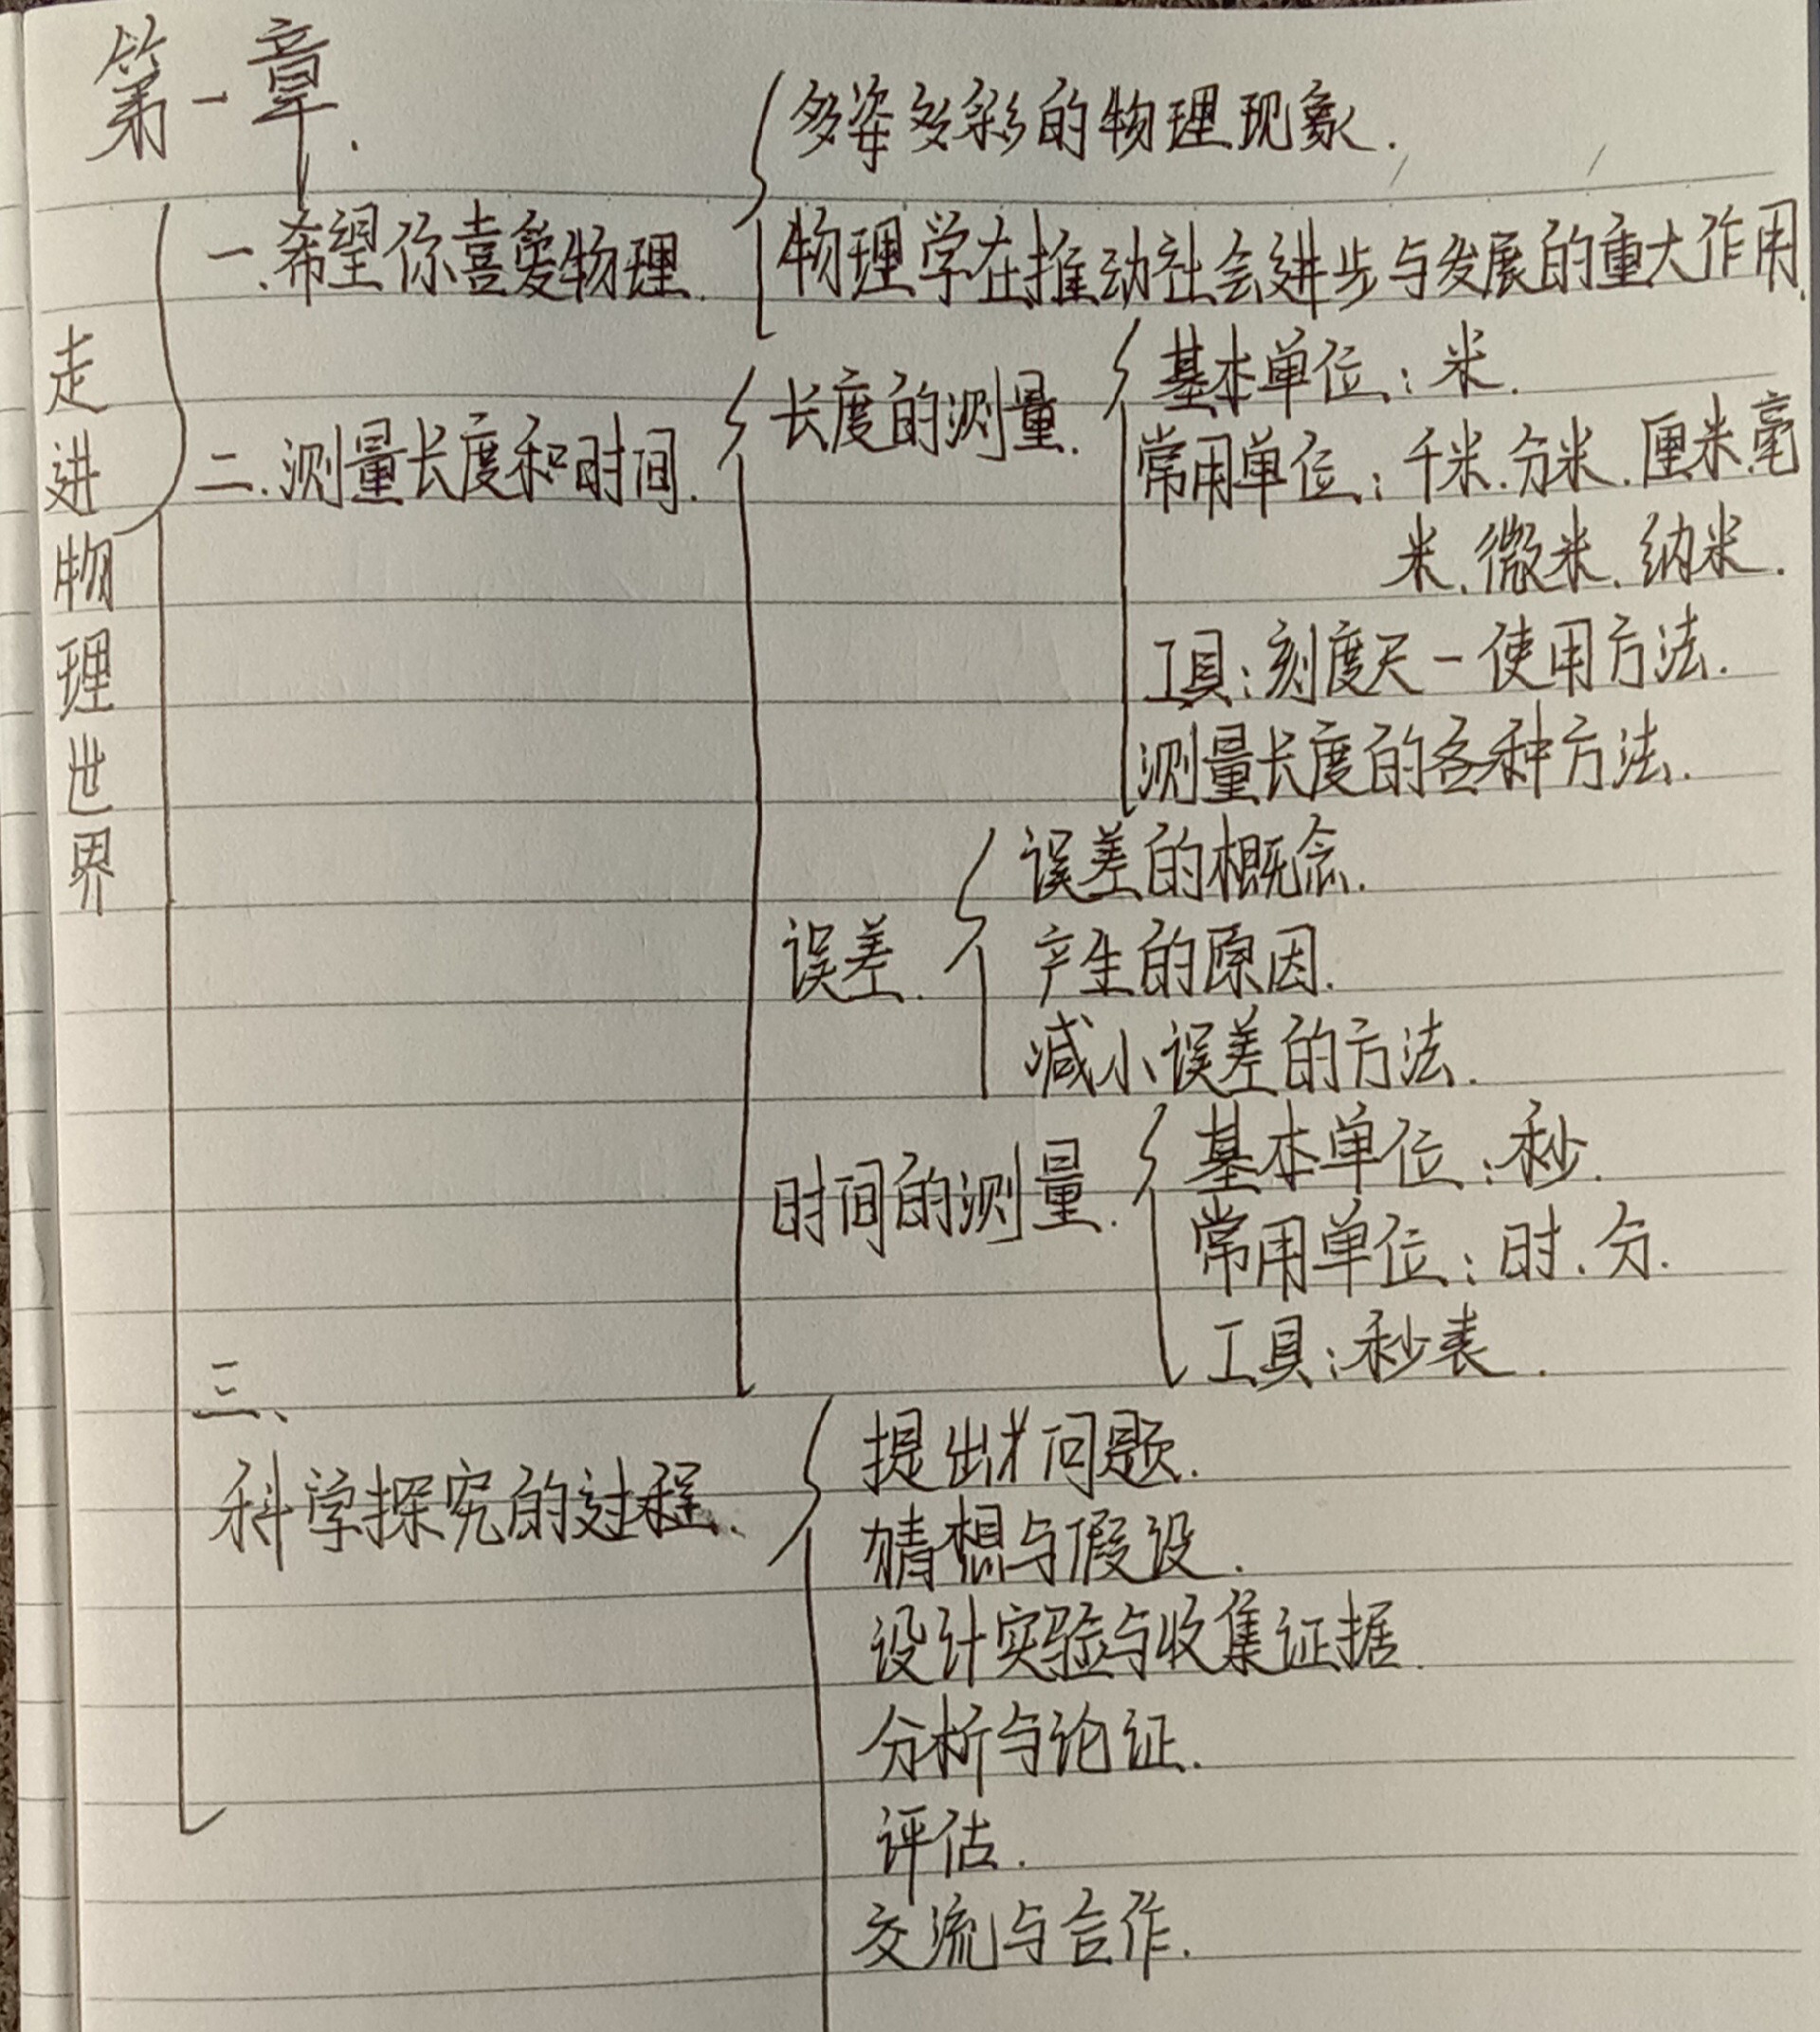 第一章.
走进物理世界
一.希望你喜爱物理.
多姿多彩的物理现象.
物理学在推动社会进步与发展的重大作用.
二.测量长度和时间.
长度的测量.
基本单位:米.
常用单位:千米.分米.厘米.毫
米.微米.纳米.
工具:刻度尺-使用方法.
测量长度的各种方法.
误差.
误差的概念.
产生的原因.
减小误差的方法.
时间的测量.
基本单位:秒.
常用单位:时.分.
工具:秒表.
三、
科学探究的过程.
提出问题.
猜想与假设.
设计实验与收集证据.
分析与论证.
评估.
交流与合作.